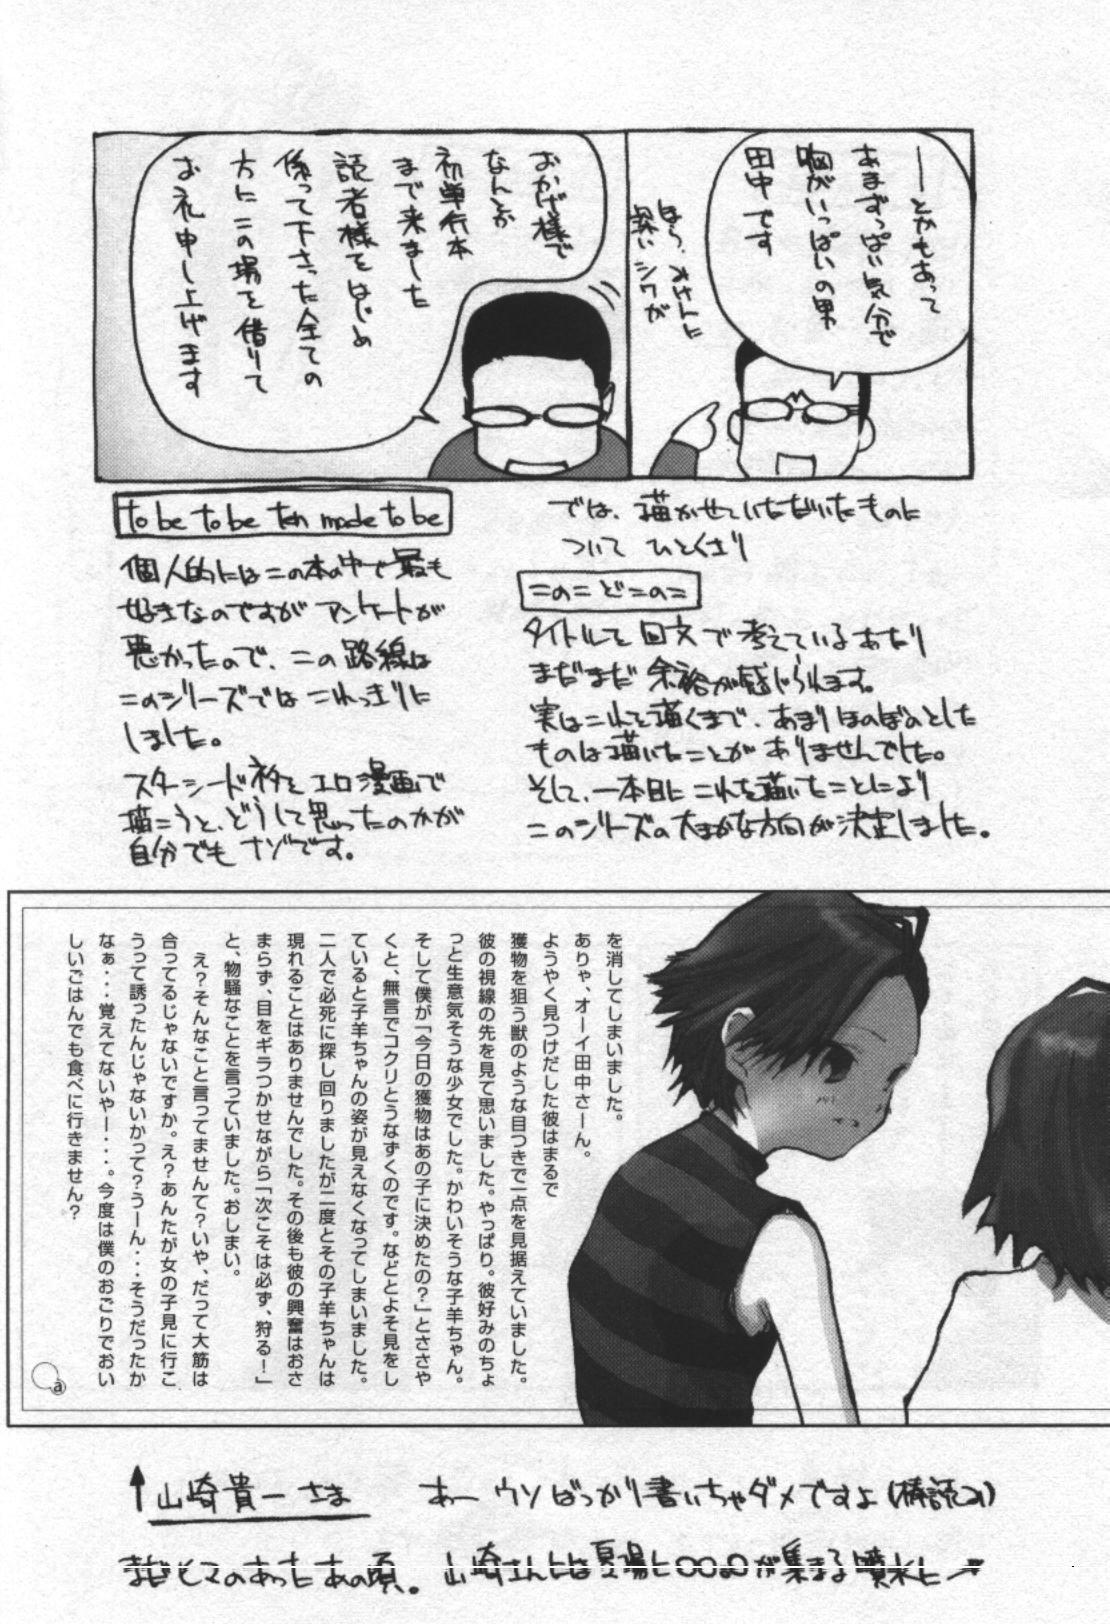 ―とかもあって
あまずっぱい気分で
胸がいっぱいの男
田中です
ほら、オケツに
深いシワが
おかげ様で
なんとか
初単行本
まで来ました
読者様をはじめ
係って下さった全ての
方にこの場を借りて
お礼申し上げます
では、描かせていただいたものに
ついて ひとくさり
このこどこのこ
タイトルを回文で考えているあたり
まだまだ余裕が感じられます。
実はこれを描くまで、あまりほのぼのとした
ものは描いたことがありませんでした。
そして、一本目にこれを描いたことにより
このシリーズの大まかな方向が決定しました。
to be to be ten made to be
個人的にはこの本の中で最も
好きなのですがアンケートが
悪かったので、この路線は
このシリーズではこれっきりに
しました。
スターシードネタをエロ漫画で
描こうと、どうして思ったのかが
自分でもナゾです。
を消してしまいました。
ありゃ、オーイ田中さーん。
ようやく見つけだした彼はまるで
獲物を狙う獣のような目つきで一点を見据えていました。
彼の視線の先を見て思いました。やっぱり。彼好みのちょ
っと生意気そうな少女でした。かわいそうな子羊ちゃん。
そして僕が「今日の獲物はあの子に決めたの?」とささや
くと、無言でコクリとうなずくのです。などとよそ見をし
ていると子羊ちゃんの姿が見えなくなってしまいました。
二人で必死に探し回りましたが二度とその子羊ちゃんは
現れることはありませんでした。その後も彼の興奮はおさ
まらず、目をギラつかせながら「次こそは必ず、狩る!」
と、物騒なことを言っていました。おしまい。
え?そんなこと言ってませんて?いや、だって大筋は
合ってるじゃないですか。え?あんたが女の子見に行こ
うって誘ったんじゃないかって?うーん・・・そうだったか
なぁ・・・覚えてないやー・・・。今度は僕のおごりでおい
しいごはんでも食べに行きません?
a
↑山崎貴一さま あー ウソばっかり書いちゃダメですよ(棒読み)
まだヒマのあったあの頃。山崎さんとは夏場に○○○○が集まる噴水に→